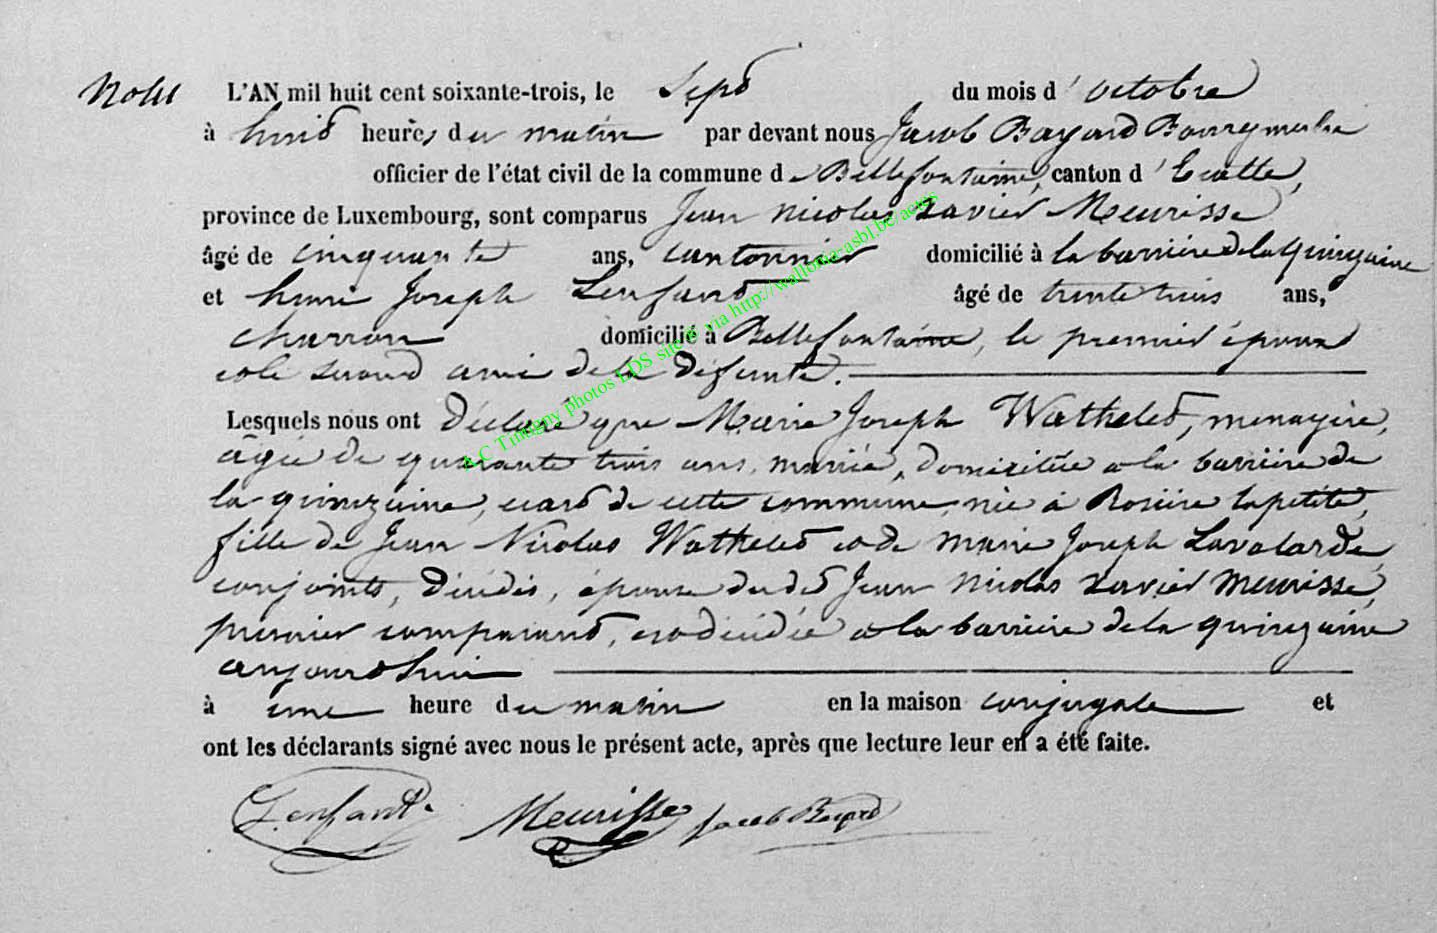 No 11 L'AN mil huit cent soixante-trois, le Sept du mois d' octobre
à huit heures du matin par devant nous Jacob Bayard Bourgmestre
officier de l'état civil de la commune de Bellefontaine, canton d' Etalle,
province de Luxembourg, sont comparus Jean Nicolas Xavier Meurisse
âgé de cinquante ans, cantonnier domicilié à la barrière de la Quinzaine
et henri Joseph Lenfant âgé de trente trois ans,
charron domicilié à Bellefontaine, le premier époux
et le second ami de la défunte.
Lesquels nous ont Déclaré que Marie Joseph Wathelet, menagère,
âgée de quarante trois ans, mariée, domiciliée a la barrière de
la quinzaine, écart de cette commune, née à Rosière la petite,
fille de Jean Nicolas Wathelet et de Marie Joseph Lavalarde,
conjoints, décédés, épouse du dt Jean Nicolas Xavier Meurisse,
premier comparant, est décédée a la barrière de la quinzaine
aujourd'hui
à une heure du matin en la maison conjugale et
ont les déclarants signé avec nous le présent acte, après que lecture leur en a été faite.
Lenfant Meurisse Jacob Bayard
A.C Tintigny photos LDS site® via http://wallonia-asbl.be/actes